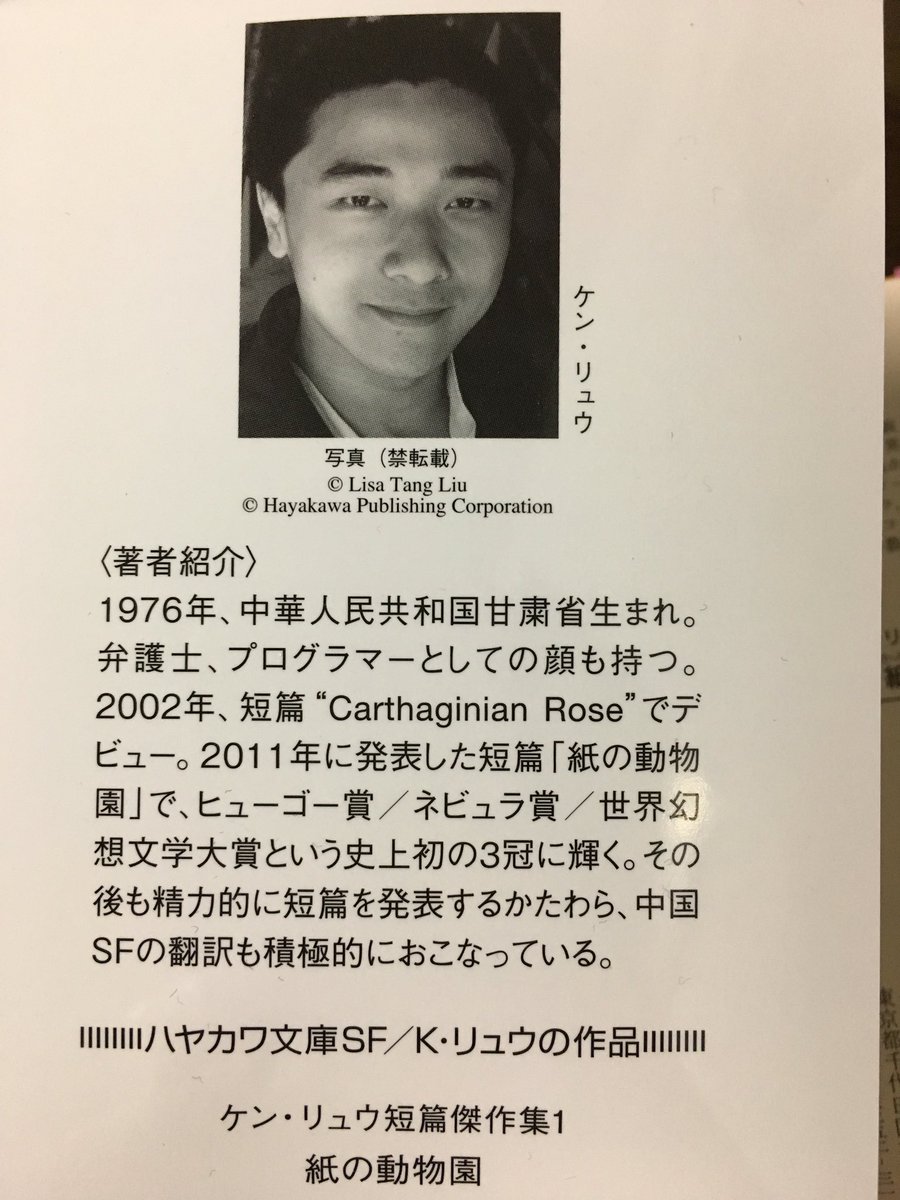 ケン・リュウ
写真（禁転載）
© Lisa Tang Liu
© Hayakawa Publishing Corporation
〈著者紹介〉
1976年、中華人民共和国甘粛省生まれ。
弁護士、プログラマーとしての顔も持つ。
2002年、短篇 “Carthaginian Rose”でデ
ビュー。2011年に発表した短篇「紙の動物
園」で、ヒューゴー賞／ネビュラ賞／世界幻
想文学大賞という史上初の3冠に輝く。その
後も精力的に短篇を発表するかたわら、中国
SFの翻訳も積極的におこなっている。
ハヤカワ文庫SF／K・リュウの作品
ケン・リュウ短篇傑作集1
紙の動物園